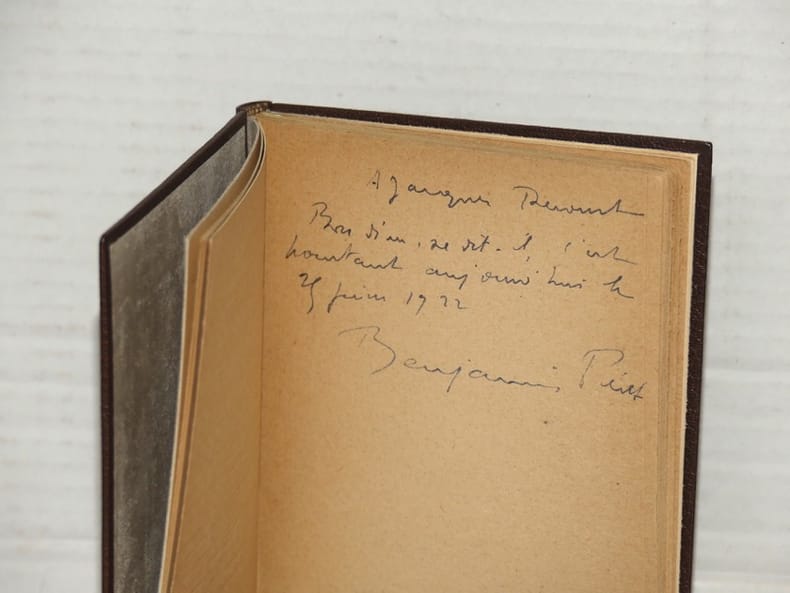 A Jacques Benoist
Bon dieu, se dit-il, c'est
pourtant aujourd'hui le
25 juin 1922
Benjamin Péret